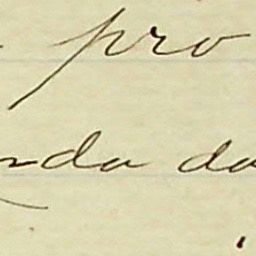 pro
nda da